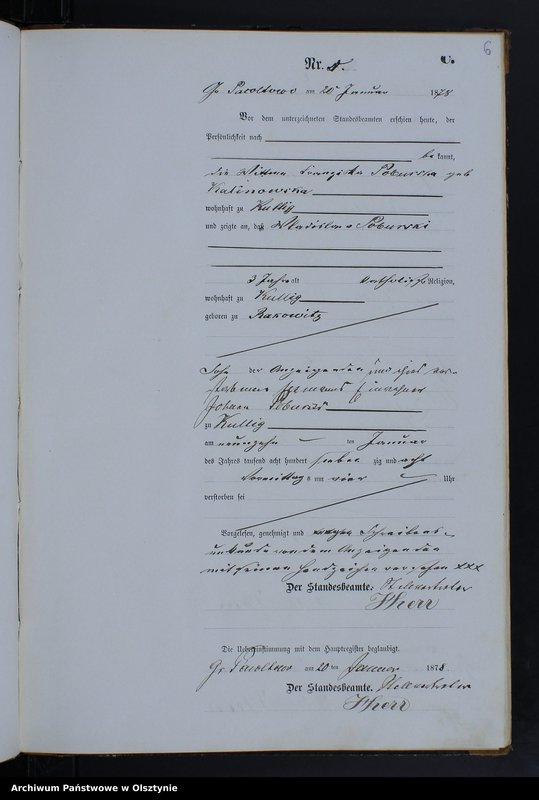 6
C.
Nr. 5.
Gr. Pacoltowo am 20 Januar 1878
Vor dem unterzeichneten Standesbeamten erschien heute, der
Persönlichkeit nach
bekannt,
die Wittwe Franziska geb
Kalinowska
wohnhaft zu Kullig
und zeigte an, daß Wladislaus
3 Jahre alt katholischer Religion,
wohnhaft zu Kullig
geboren zu Rakowitz
Sohn der Anzeigenden und ihres ver-
storbenen Ehemannes Einwohner
Johann
zu Kullig
am neunzehn ten Januar
des Jahres tausend acht hundert siebenzig und acht
Vormittags um vier Uhr
verstorben sei
Vorgelesen, genehmigt und wegen Schreibens-
unkunde von dem Anzeigenden
mit seinem Handzeichen versehen xxx
Der Standesbeamte. Stellvertreter
Die Uebereinstimmung mit dem Hauptregister beglaubigt.
Gr. Pacoltowo am 20 ten Januar 1878.
Der Standesbeamte. Stellvertreter
Archiwum Państwowe w Olsztynie